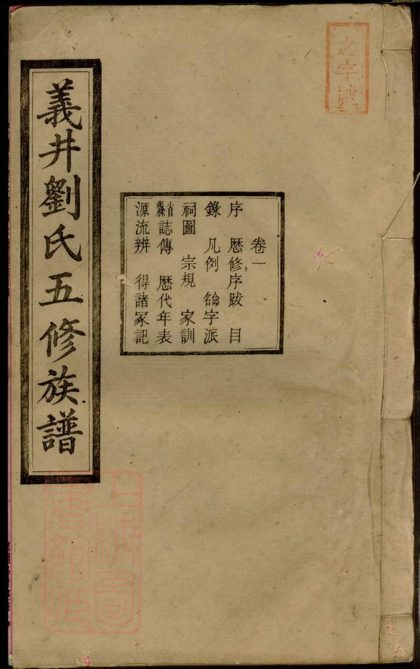 之字號
卷一
序 歷修序跋 目
錄 凡例 字派
祠圖 宗規 家訓
誌傳 歷代年表
源流辨 得諸冢記
義井劉氏五修族譜
上海圖
書館藏